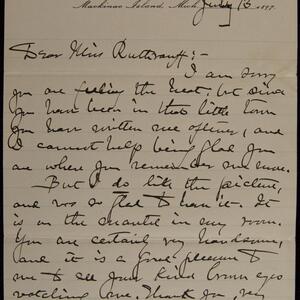 Mackinac Island, Mich. July 16 1897.
Dear Miss Ruthrauff:-
I am sorry
you are feeling the heat, but since
you have been in that little town
you have written me oftener, and
I cannot help being glad you
are where you remember me more.
But I do like the picture,
and was so glad to have it. It
is on the mantel in my room.
You are certainly very handsome,
and it is a great pleasure to
me to see your kind brown eyes
watching me. Thank you very